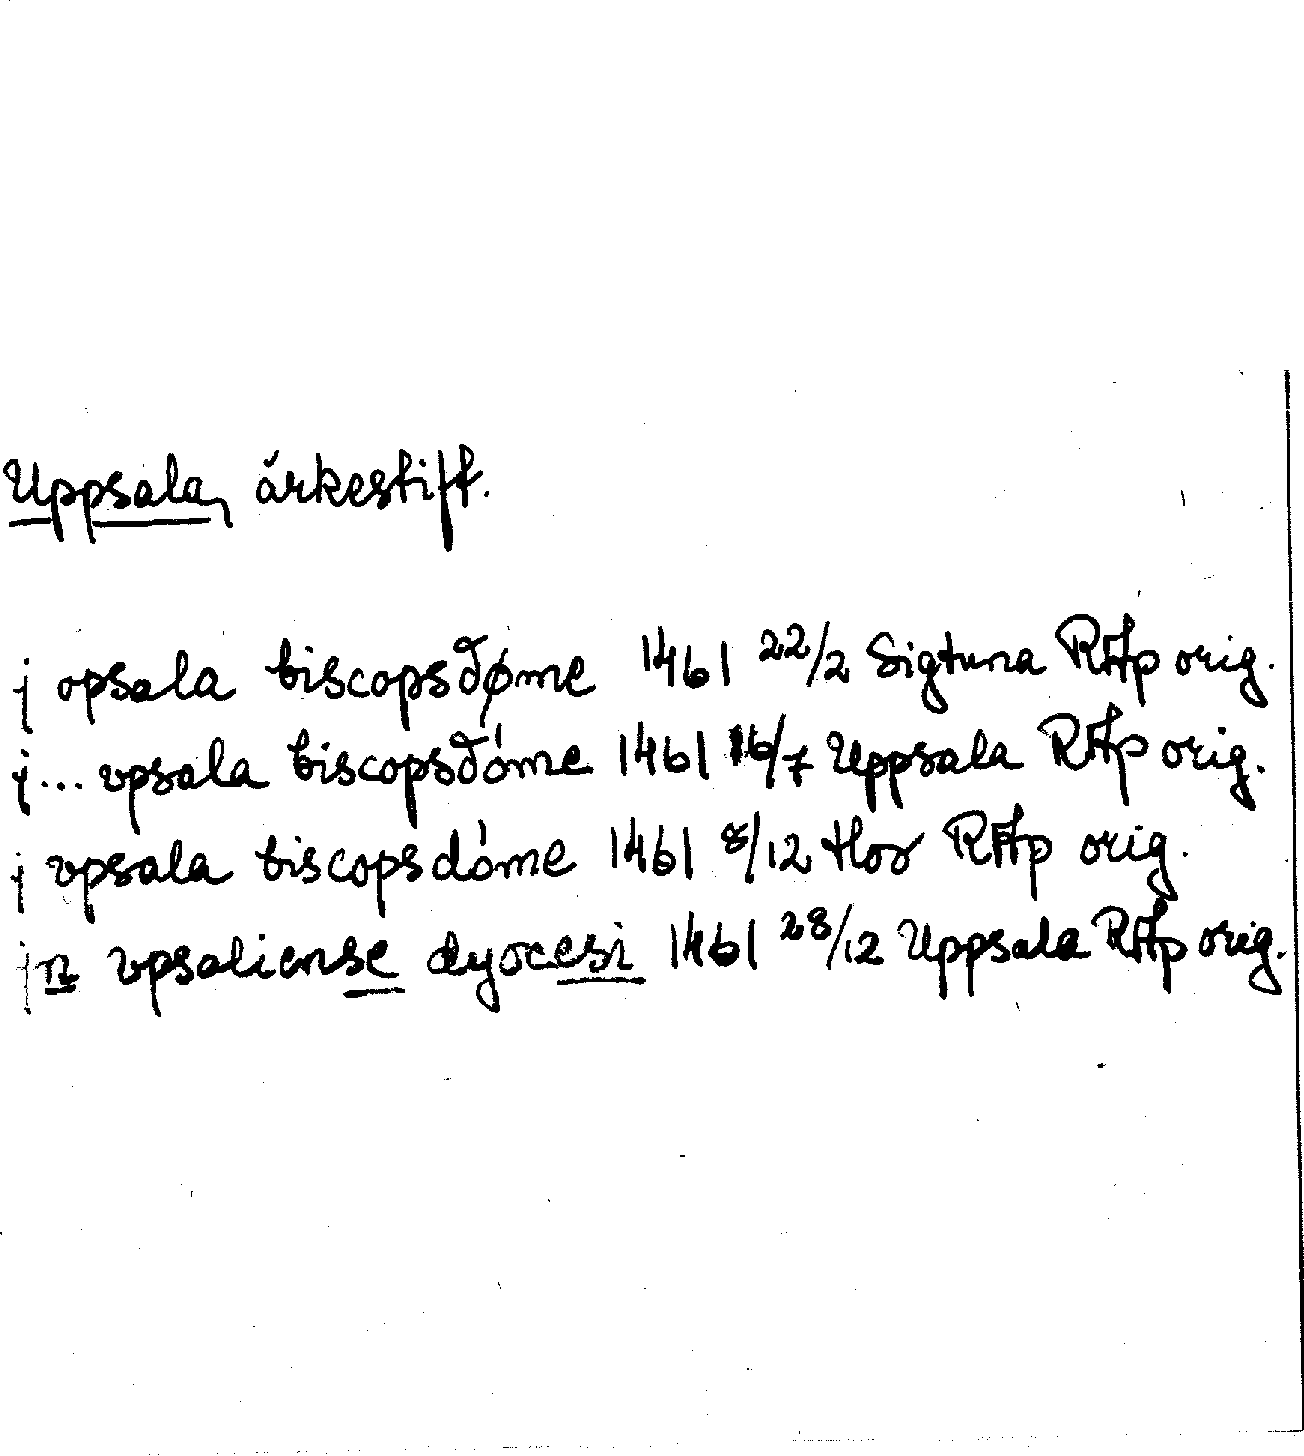 Uppsala, ärkestift.
j opsala biscopsdøme 1461 22/2 Sigtuna RAp orig.
j... vpsala biscopsdóme 1461 16/7 Uppsala RAp orig.
j vpsala biscopsdóme 1461 8/12 RAp orig.
jn vpsaliense dyocesi 1461 28/12 Uppsala RAp orig.